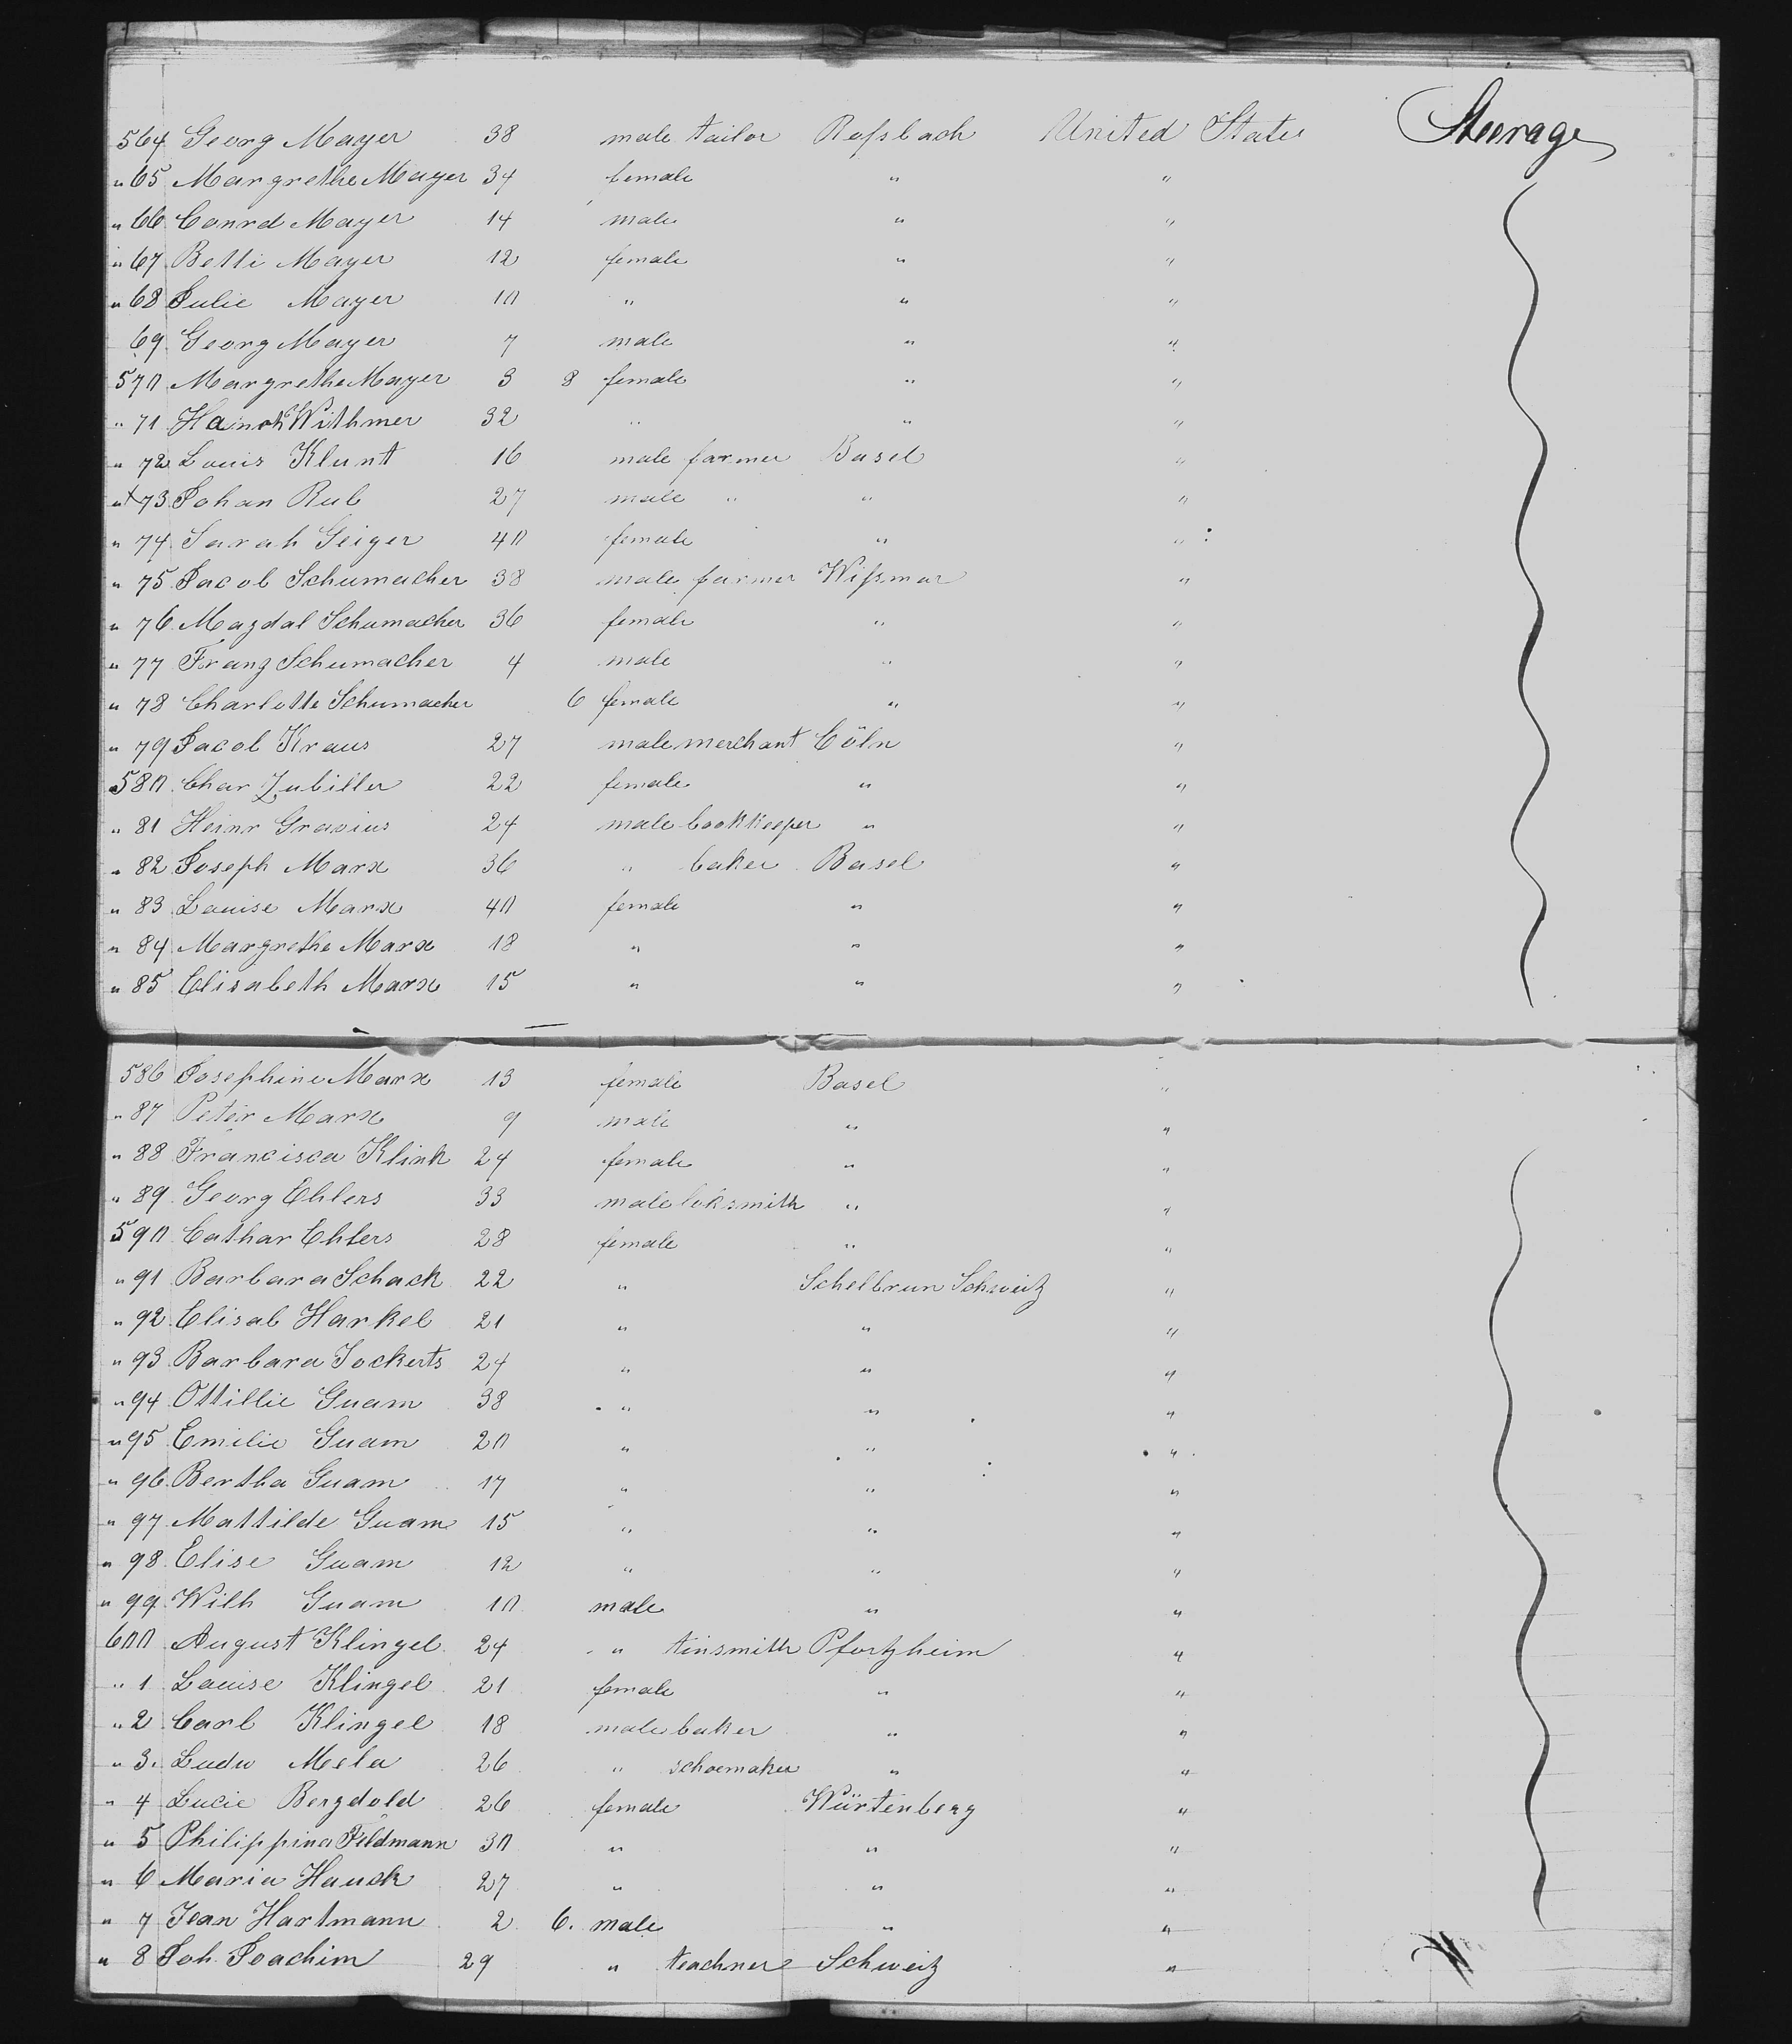 564 Georg Mayer 38 male tailor Roſsbach United States Steerage
" 65 Margrethe Mayer 34 female " "
" 66 Conrd Mayer 14 male " "
" 67 Betti Mayer 12 female " "
" 68 Julie Mayer 10 " " "
69 Georg Mayer 7 male " "
570 Margrethe Mayer 3 8 female " "
" 71 Hainch Withmer 32 " " "
" 72 Louis Klunt 16 male farmer Basel "
" 73 Johan Rub 27 male " " "
" 74 Sarah Geiger 40 female " "
" 75 Jacob Schumacher 38 male farmer Wiſsmar "
" 76 Magdal Schumacher 36 female " "
" 77 Franz Schumacher 4 male " "
" 78 Charlotte Schumacher 6 female " "
" 79 Jacob Kraus 27 male merchant Cöln "
580 Char Zubiller 22 female " "
" 81 Heinr Gravius 24 male bookkeeper " "
" 82 Joseph Marx 36 " baker Basel "
" 83 Louise Marx 40 female " "
" 84 Margrethe Marx 18 " " "
" 85 Elisabeth Marx 15 " " "
586 Josephine Marx 13 female Basel "
" 87 Peter Marx 9 male " "
" 88 Francisca Klink 24 female " "
" 89 Georg Ehlers 33 male loksmith " "
590 Cathar Ehlers 28 female " "
" 91 Barbara Schack 22 " Schelbrun Schweitz "
" 92 Elisab Harkel 21 " " "
" 93 Barbara Jockerts 24 " " "
" 94 Ottillie Guam 38 " " "
" 95 Emilie Guam 20 " " "
" 96 Bertha Guam 17 " " "
" 97 Mattilde Guam 15 " " "
" 98 Elise Guam 12 " " "
" 99 Wilh Guam 10 male " "
600 August Klingel 24 " tinsmith Pfortzheim "
" 1 Louise Klingel 21 female " "
" 2 Carl Klingel 18 male baker " "
" 3 Ludw Mela 26 " schoemaker " "
" 4 Lucie Bergdold 26 female Würtenberg "
" 5 Philippina Feldmann 30 " " "
" 6 Maria Hauck 27 " " "
" 7 Jean Hartmann 2 6. male " "
" 8 Joh. Joachim 29 " teachner Schweitz "